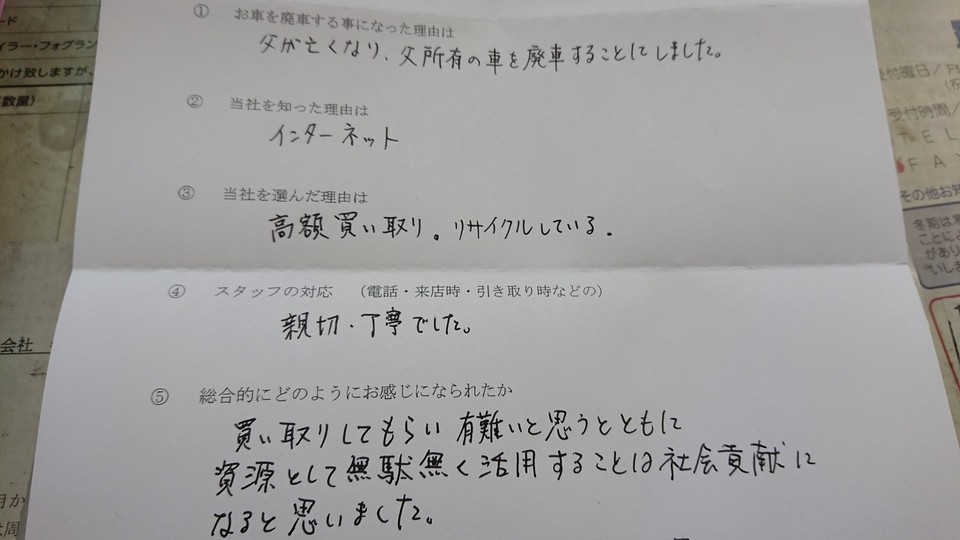 ① お車を廃車する事になった理由は
父が亡くなり、父所有の車を廃車することにしました。
② 当社を知った理由は
インターネット
③ 当社を選んだ理由は
高額買い取り。リサイクルしている。
④ スタッフの対応 (電話・来店時・引き取り時などの)
親切・丁寧でした。
⑤ 総合的にどのようにお感じになられたか
買い取りしてもらい有難いと思うとともに
資源として無駄無く活用することは社会貢献に
なると思いました。
ード
イラー・フォグラン
かけ致しますが、
数量)
会社
月か
は周
受付曜日/月
(祝
受付時間/
TEL
FAX
その他お知
冬期は
ことに
があり
いしま